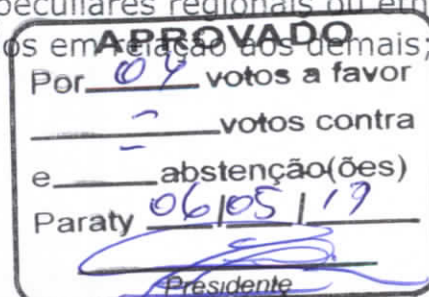 peculiares regionais ou
os em relação aos demais;
APROVADO
Por 04 votos a favor
- votos contra
e - abstenção(ões)
Paraty 06/05/19
Presidente